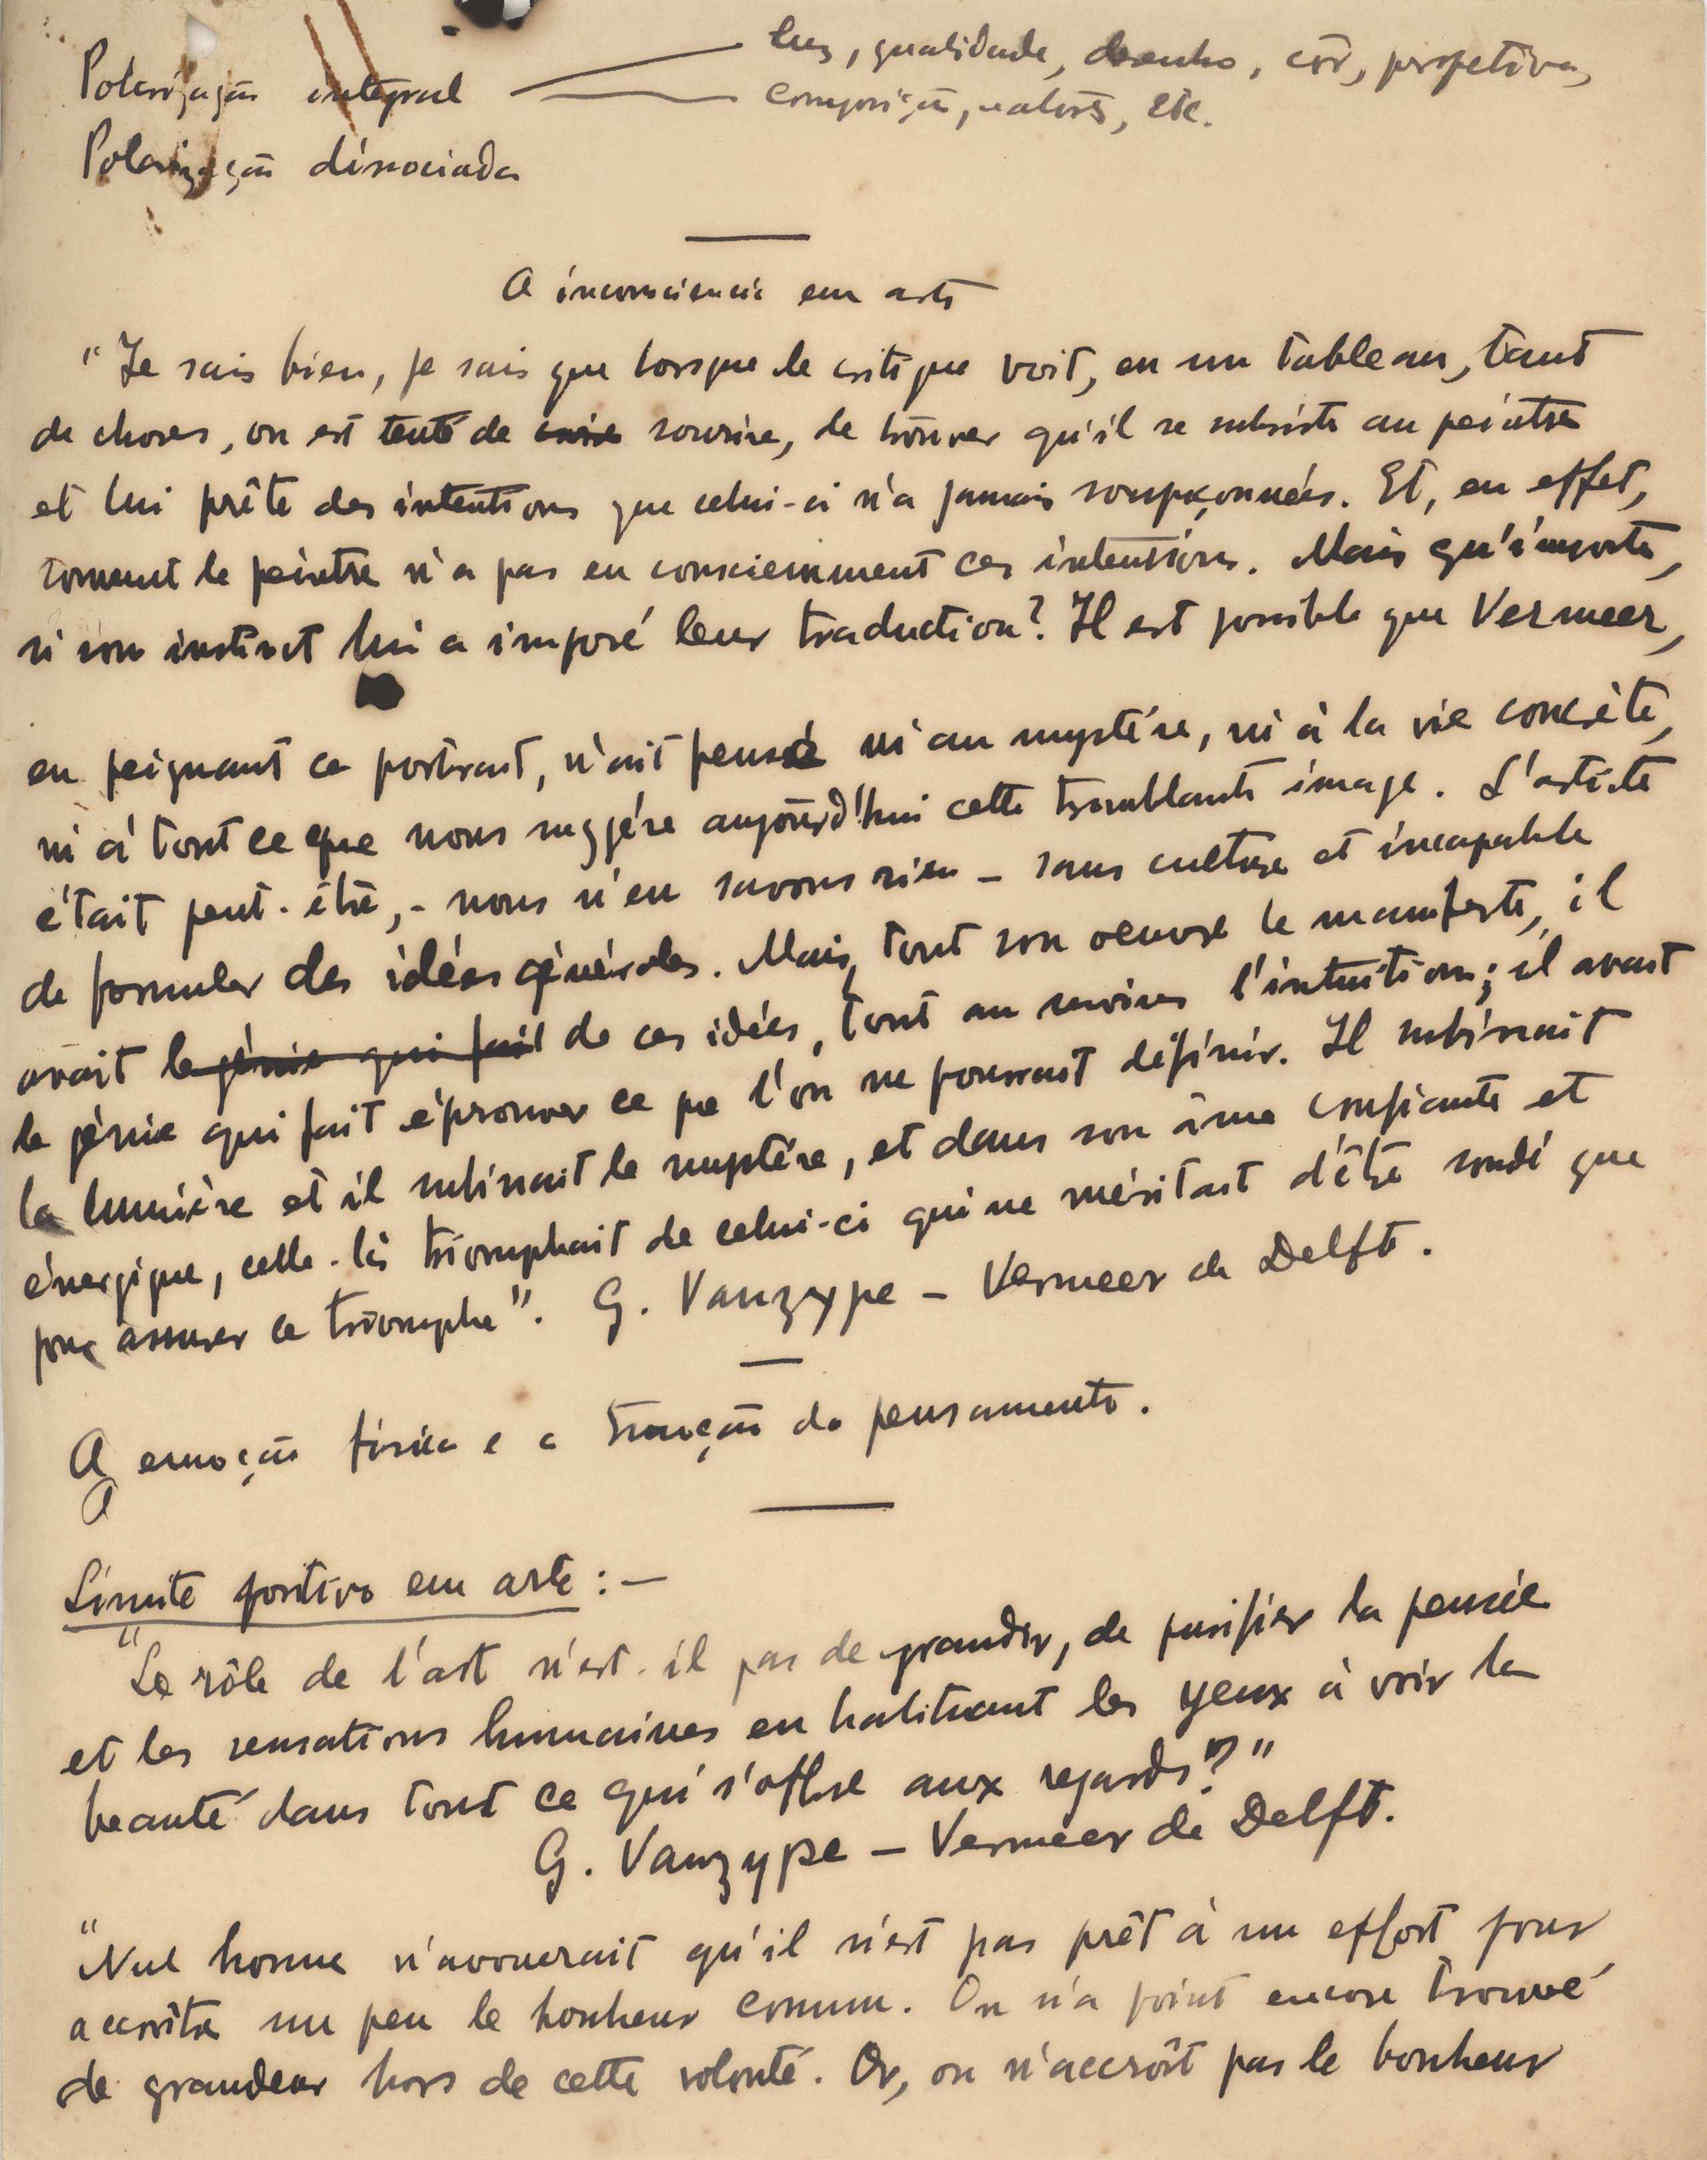 Polarização integral
luz, qualidade, desenho, côr, perspetiva,
composição, valores, etc.
Polarização dissociada
A inconsciencia em arte
"Je sais bien, je sais que lorsque le critique voit, en un tableau, tant
de choses, on est tenté de sourire, de trouver qu'il se substitue au peintre
et lui prête des intentions que celui-ci n'a jamais soupçonnées. Et, en effet,
souvent le peintre n'a pas eu consciemment ces intentions. Mais qu'importe,
si son instinct lui a imposé leur traduction? Il est possible que Vermeer,
en peignant ce portrait, n'ait pensé ni au mystére, ni à la vie concrète,
ni à tout ce que nous suggére aujourd'hui cette troublante image. L'artiste
était peut-être, - nous n'en savons rien - sans culture et incapable
de formuler des idées générales. Mais, tout son oeuvre le manifeste, il
avait le génie qui fait de ces idées, tout au moins l'intuition; il avait
le génie qui fait éprouver ce que l'on ne pourrait définir. Il subissait
la lumière et il subissait le mystére, et dans son âme confiante et
énergique, celle-là triomphait de celui-ci qui ne méritait d'être sondé que
pour assurer ce triomphe". G. Vanzype - Vermeer de Delft.
A emoção física e a do pensamento.
A
Limite positivo em arte: -
"Le rôle de l'art n'est-il pas de grandir, de purifier la pensée
et les sensations humaines en habituant les yeux à voir la
beauté dans tout ce qui s'offre aux regards?"
G. Vanzype - Vermeer de Delft.
"Nul homme n'avouerait qu'il n'est pas prêt à un effort pour
accroître un peu le bonheur comum. On n'a point encore trouvé
de grandeur hors de cette volonté. Or, on n'accroît pas le bonheur